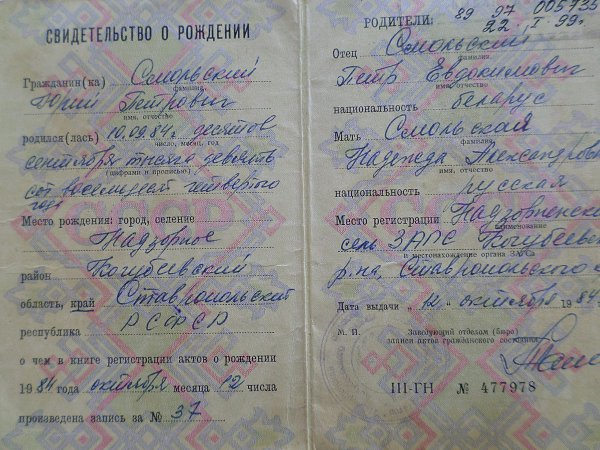 СВИДЕТЕЛЬСТВО О РОЖДЕНИИ
Гражданин(ка) Смольский
фамилия
Юрий Петрович
имя, отчество
родился(лась) 10.09.84г. десятого
число, месяц, год
сентября тысяча девятьсот
(цифрами и прописью)
сот восемьдесят четвёртого
года
Место рождения: город, селение
Надзорное
район Кочубеевский
область, край Ставропольский
республика РСФСР
о чем в книге регистрации актов о рождении
1984 года октября месяца 12 числа
произведена запись за № 37
РОДИТЕЛИ: 89 97 005735
22. I. 99г.
Отец Смольский
фамилия
Петр Евдокимович
имя, отчество
национальность беларус
Мать Смольская
фамилия
Надежда Александровна
имя, отчество
национальность русская
Место регистрации Надзорненский
наименование
сель ЗАГС Кочубеевск
и местонахождение органа ЗАГСа
р-на Ставропольского к
Дата выдачи „ 12 „ октября 1984
М. П. Заведующий отделом (бюро)
записи актов гражданского состояния
III-ГН № 477978